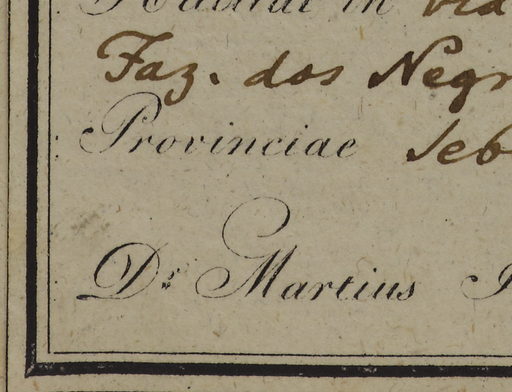 Habitat in
Faz. dos Negr
Provinciae Seb
Dr. Martius